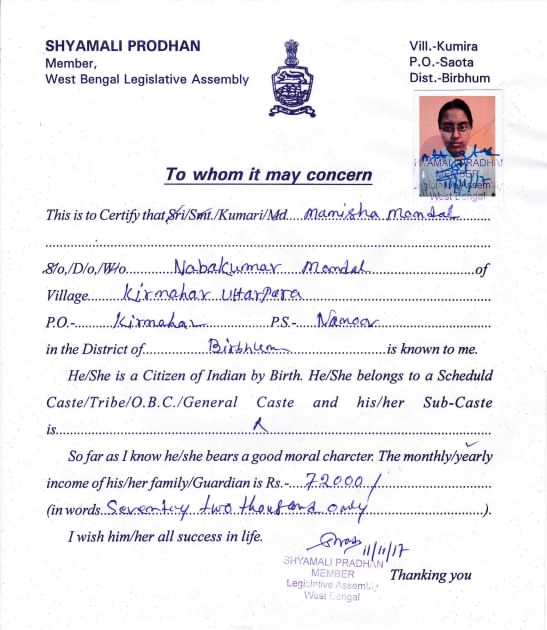 SHYAMALI PRODHAN
Member,
West Bengal Legislative Assembly
Vill.-Kumira
P.O.-Saota
Dist.-Birbhum
SHYAMALI PRADHAN
MEMBER
Legislative Assembly
West Bengal
To whom it may concern
This is to Certify that Sri/Smt./Kumari/Md. Manisha Mondal
S/o,/D/o,/W/o. Nabakumar Mondal of
Village. Kirnahar Uttarpara
P.O.- Kirnahar P.S.- Nanoor
in the District of. Birbhum is known to me.
He/She is a Citizen of Indian by Birth. He/She belongs to a Scheduld
Caste/Tribe/O.B.C./General Caste and his/her Sub-Caste
is.
So far as I know he/she bears a good moral charcter. The monthly/yearly
income of his/her family/Guardian is Rs-. 72000/
(in words. Seventy two thousand only ).
I wish him/her all success in life.
11/11/17
SHYAMALI PRADHAN
MEMBER
Legislative Assembly
West Bengal
Thanking you